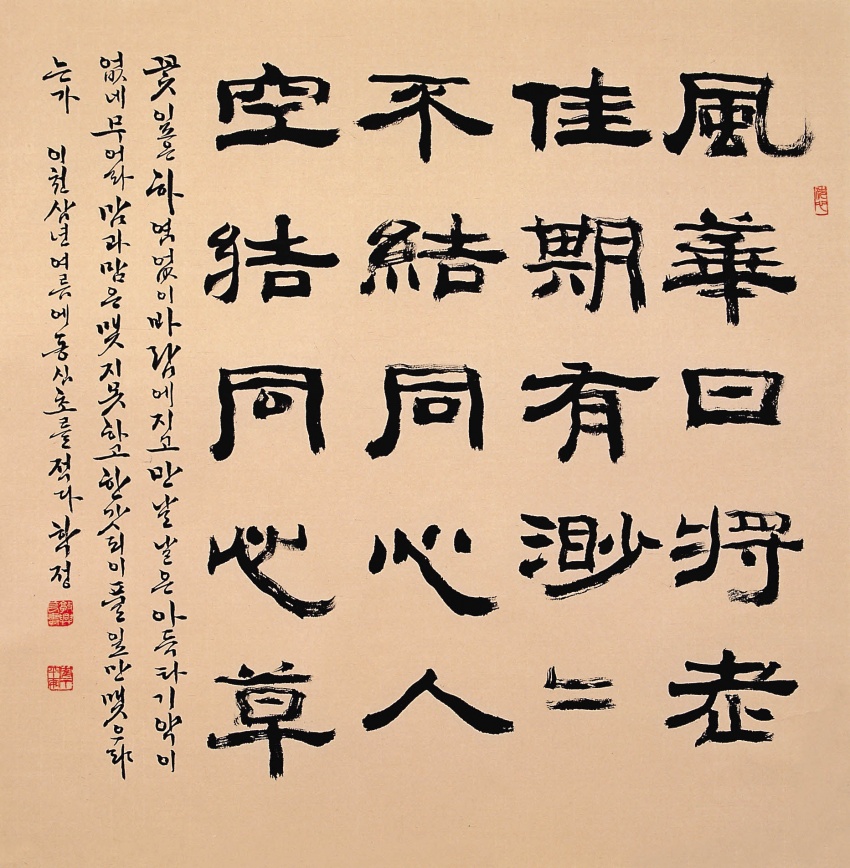 風華日將老
佳期有渺〻
不結同心人
空結同心草
꽃잎은 하염없이 바람에 지고 만날 날은 아득타 기약이
없네 무어라 맘과 맘은 맺지 못하고 한갓되이 풀잎만 맺으랴
는가 이천삼년 여름에 동심초를 적다 학정